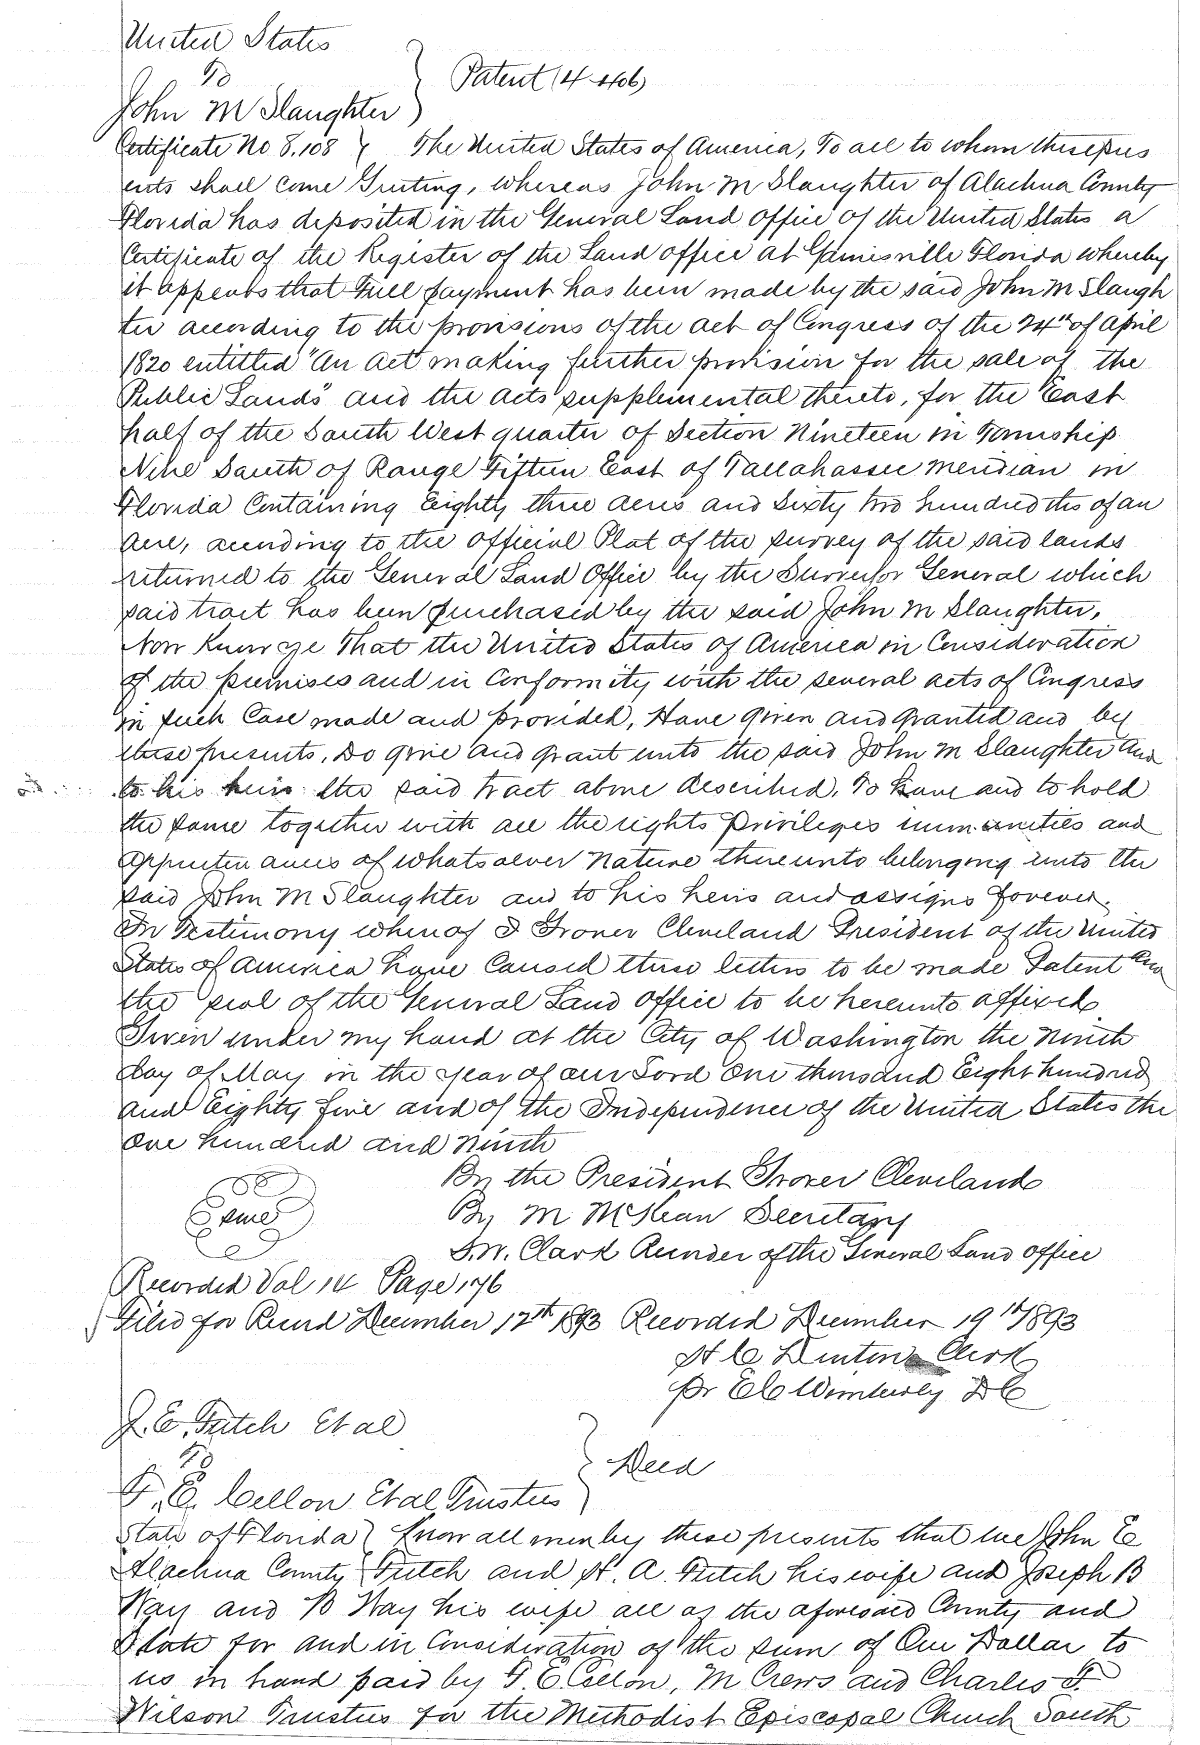 United States
To
John M Slaughter } Patent (4-406)
Certificate No 8.108 } The United States of America, To all to whom these pres
ents shall come Greeting, whereas John M Slaughter of Alachua County
Florida has deposited in the General Land office of the United States a
Certificate of the Register of the Land office at Gainesville Florida whereby
it appears that Full payment has been made by the said John M Slaugh
ter according to the provisions of the act of Congress of the 24th of April
1820 entitled "An Act making further provision for the sale of the
Public Lands" and the acts supplemental thereto, for the East
half of the South West quarter of Section Nineteen in Township
Nine South of Range Fifteen East of Tallahassee Meridian in
Florida Containing Eighty three acres and Sixty two hundredths of an
Acre, according to the official Plat of the survey of the said lands
returned to the General Land Office by the Surveyor General which
said tract has been purchased by the said John M Slaughter,
Now Know ye That the United States of America in Consideration
of the premises and in Conformity with the several acts of Congress
in such Case made and provided, Have given and granted and by
these presents, Do give and grant unto the said John M Slaughter and
to his heirs the said tract above described. To have and to hold
the same together with all the rights privileges immunities and
appurtenances of whatsoever nature thereunto belonging unto the
said John M Slaughter and to his heirs and assigns forever.
In Testimony whereof I Grover Cleveland President of the United
States of America have Caused these letters to be made Patent and
the seal of the General Land office to be hereunto affixed
Given under my hand at the City of Washington the Ninth
day of May in the year of our Lord One thousand Eight hundred
and Eighty five and of the Independence of the United States the
One hundred and Ninth
By the President Grover Cleveland
By M McKean Secretary
S.W. Clark Recorder of the General Land office
Recorded Vol 14 Page 176
Filed for Record December 12th 1893 Recorded December 19th/1893
H C Denton Clerk
Pr E C Wimberly D C
J. E. Futch Et al
To
F. E. Cellon Et al Trustees } Deed
State of Florida } Know all men by these presents that we John E
Alachua County } Futch and H. A. Futch his wife and Joseph B
Way and B Way his wife all of the aforesaid County and
State for and in Consideration of the sum of One Dollar to
us in hand paid by F. E. Cellon, M Crews and Charles F.
Wilson Trustees for the Methodist Episcopal Church South